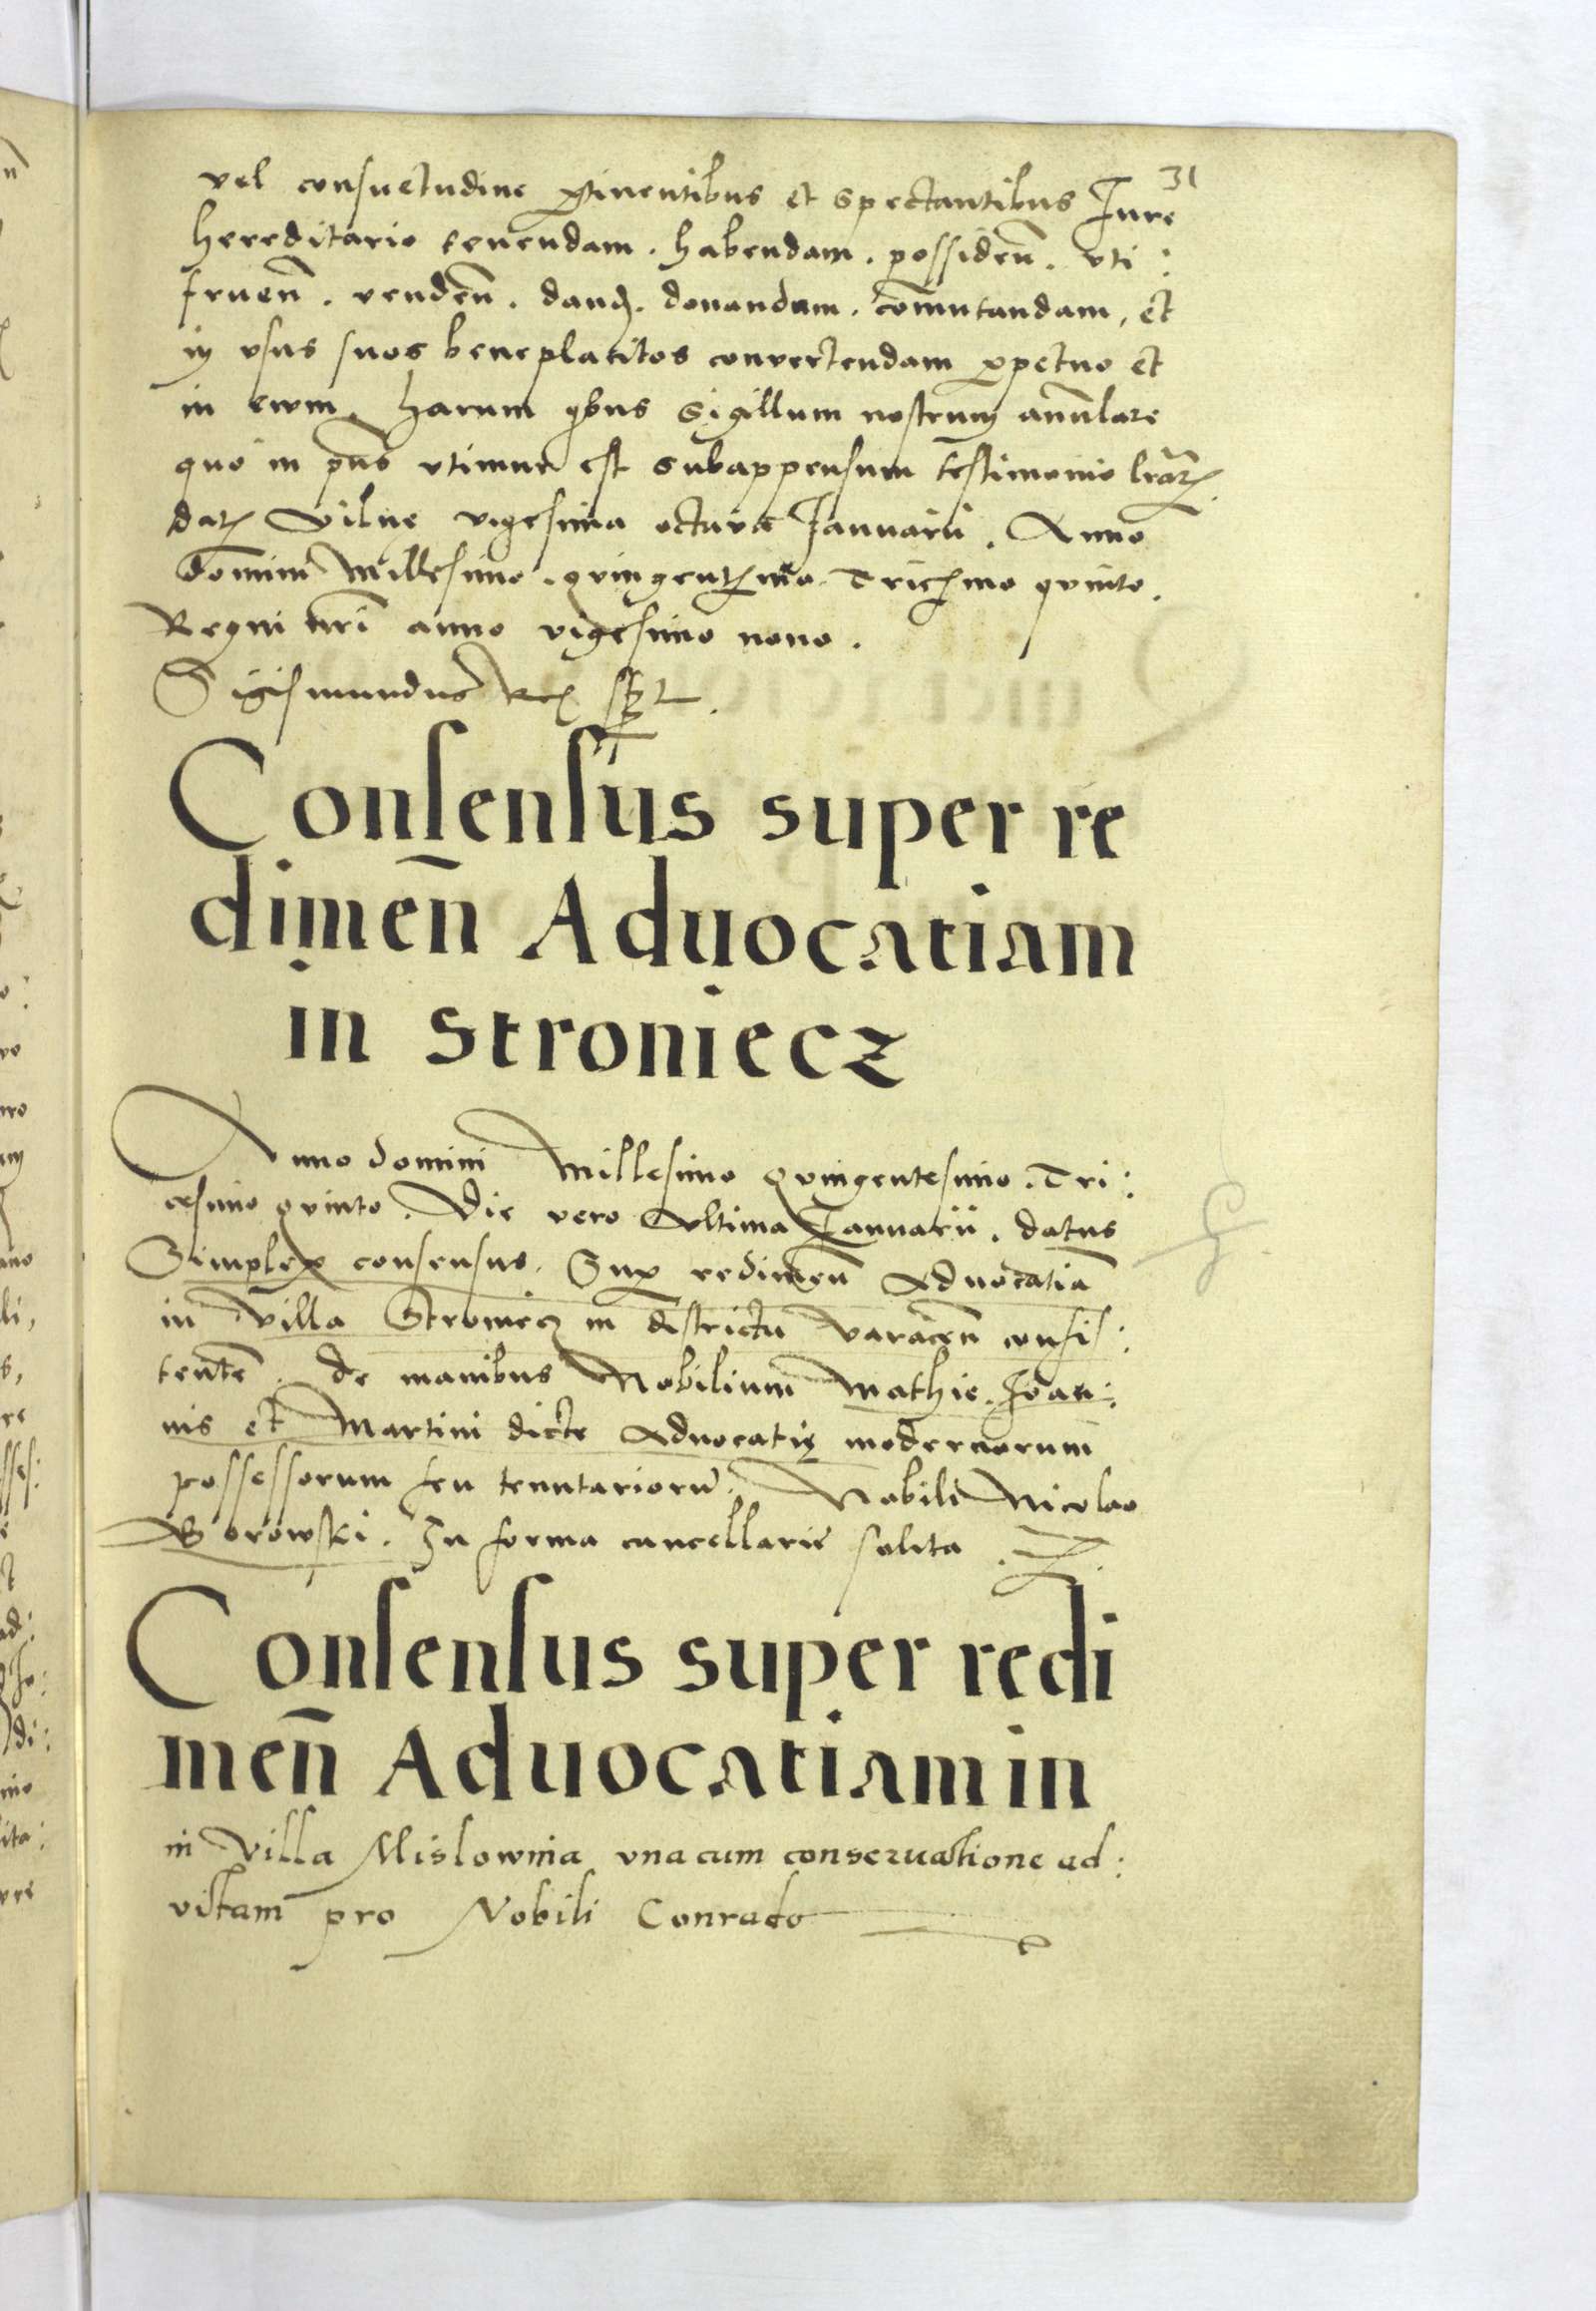 31
vel consuetudine ꝑtinentibus et spectantibus Iure
hereditario tenendam . habendam . possideñ . vti :
frueñ . vendeñ . dand . donandam . com̄utandam , et
in vsus suos beneplacitos convertendam ꝑpetuo et
in ewm . Harum qbus Sigillum nostrum anulare
quo in pñs vtimur est subappensum testimonio lrarꝝ
datꝝ Vilnę vigesima octava Ianuarii . Anno
Domini Millesimo . qvingentesimo Tricesimo qvinto .
Regni nrī anno vigesimo nono .
Sigismundus Rex sst
Consensus super re
dimen̄ Aduocatiam
in Stroniecz
Anno domini Millesimo qvingentesimo . Tri :
cesimo qvinto . Die vero Vltima Ianuarii . datus
Simplex consensus . Suꝑ redimen̄ Aduocatiā
in Villa Stromiecz in districtu Varacen̄ consis :
tentē . de manibus Nobilium Mathie . Ioan :
nis et Martini dicte Aduocatię modernorum
possessorum seu tenutariorū . Nobili Nicolao
Borowski . In forma cancellarie solita .
Consensus super redi
men̄ Aduocatiam in
in Villa Mislownia vna cum conseruatione ad :
vitam pro Nobili Conrado